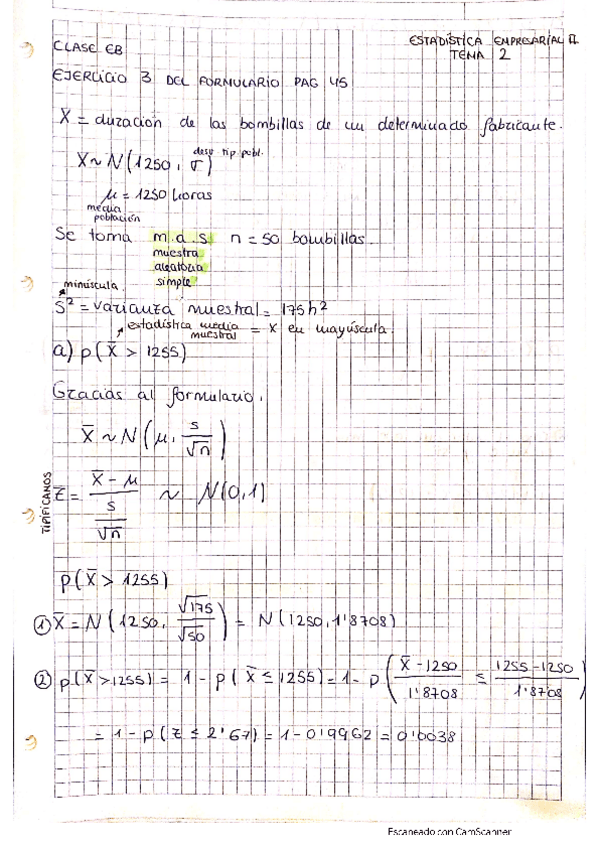 CLASE EB
ESTADÍSTICA EMPRESARIAL II
TEMA 2
EJERCICIO 3 DEL FORMULARIO PAG 45
X = duración de las bombillas de un determinado fabricante.
X ~ N(1250, σ) desv. tip. pobl.
μ = 1250 horas
media
población
Se toma m.a.s. n = 50 bombillas.
muestra
aleatoria
simple
minúscula.
s² = varianza muestral = 175h²
estadística media muestral = x en mayúscula.
a) p(X̄ > 1255)
Gracias al formulario.
X̄ ~ N(μ, s/√n)
TIPIFICANOS
Z = (X̄ - μ)/(s/√n) ~ N(0,1)
p(X̄ > 1255)
① X̄ = N(1250, √175/√50) = N(1250, 1'8708)
② p(X̄ > 1255) = 1 - p(X̄ ≤ 1255) = 1 - p((X̄ - 1250)/1'8708 ≤ (1255 - 1250)/1'8708)
= 1 - p(Z ≤ 2'67) = 1 - 0'9962 = 0'0038
Escaneado con CamScanner